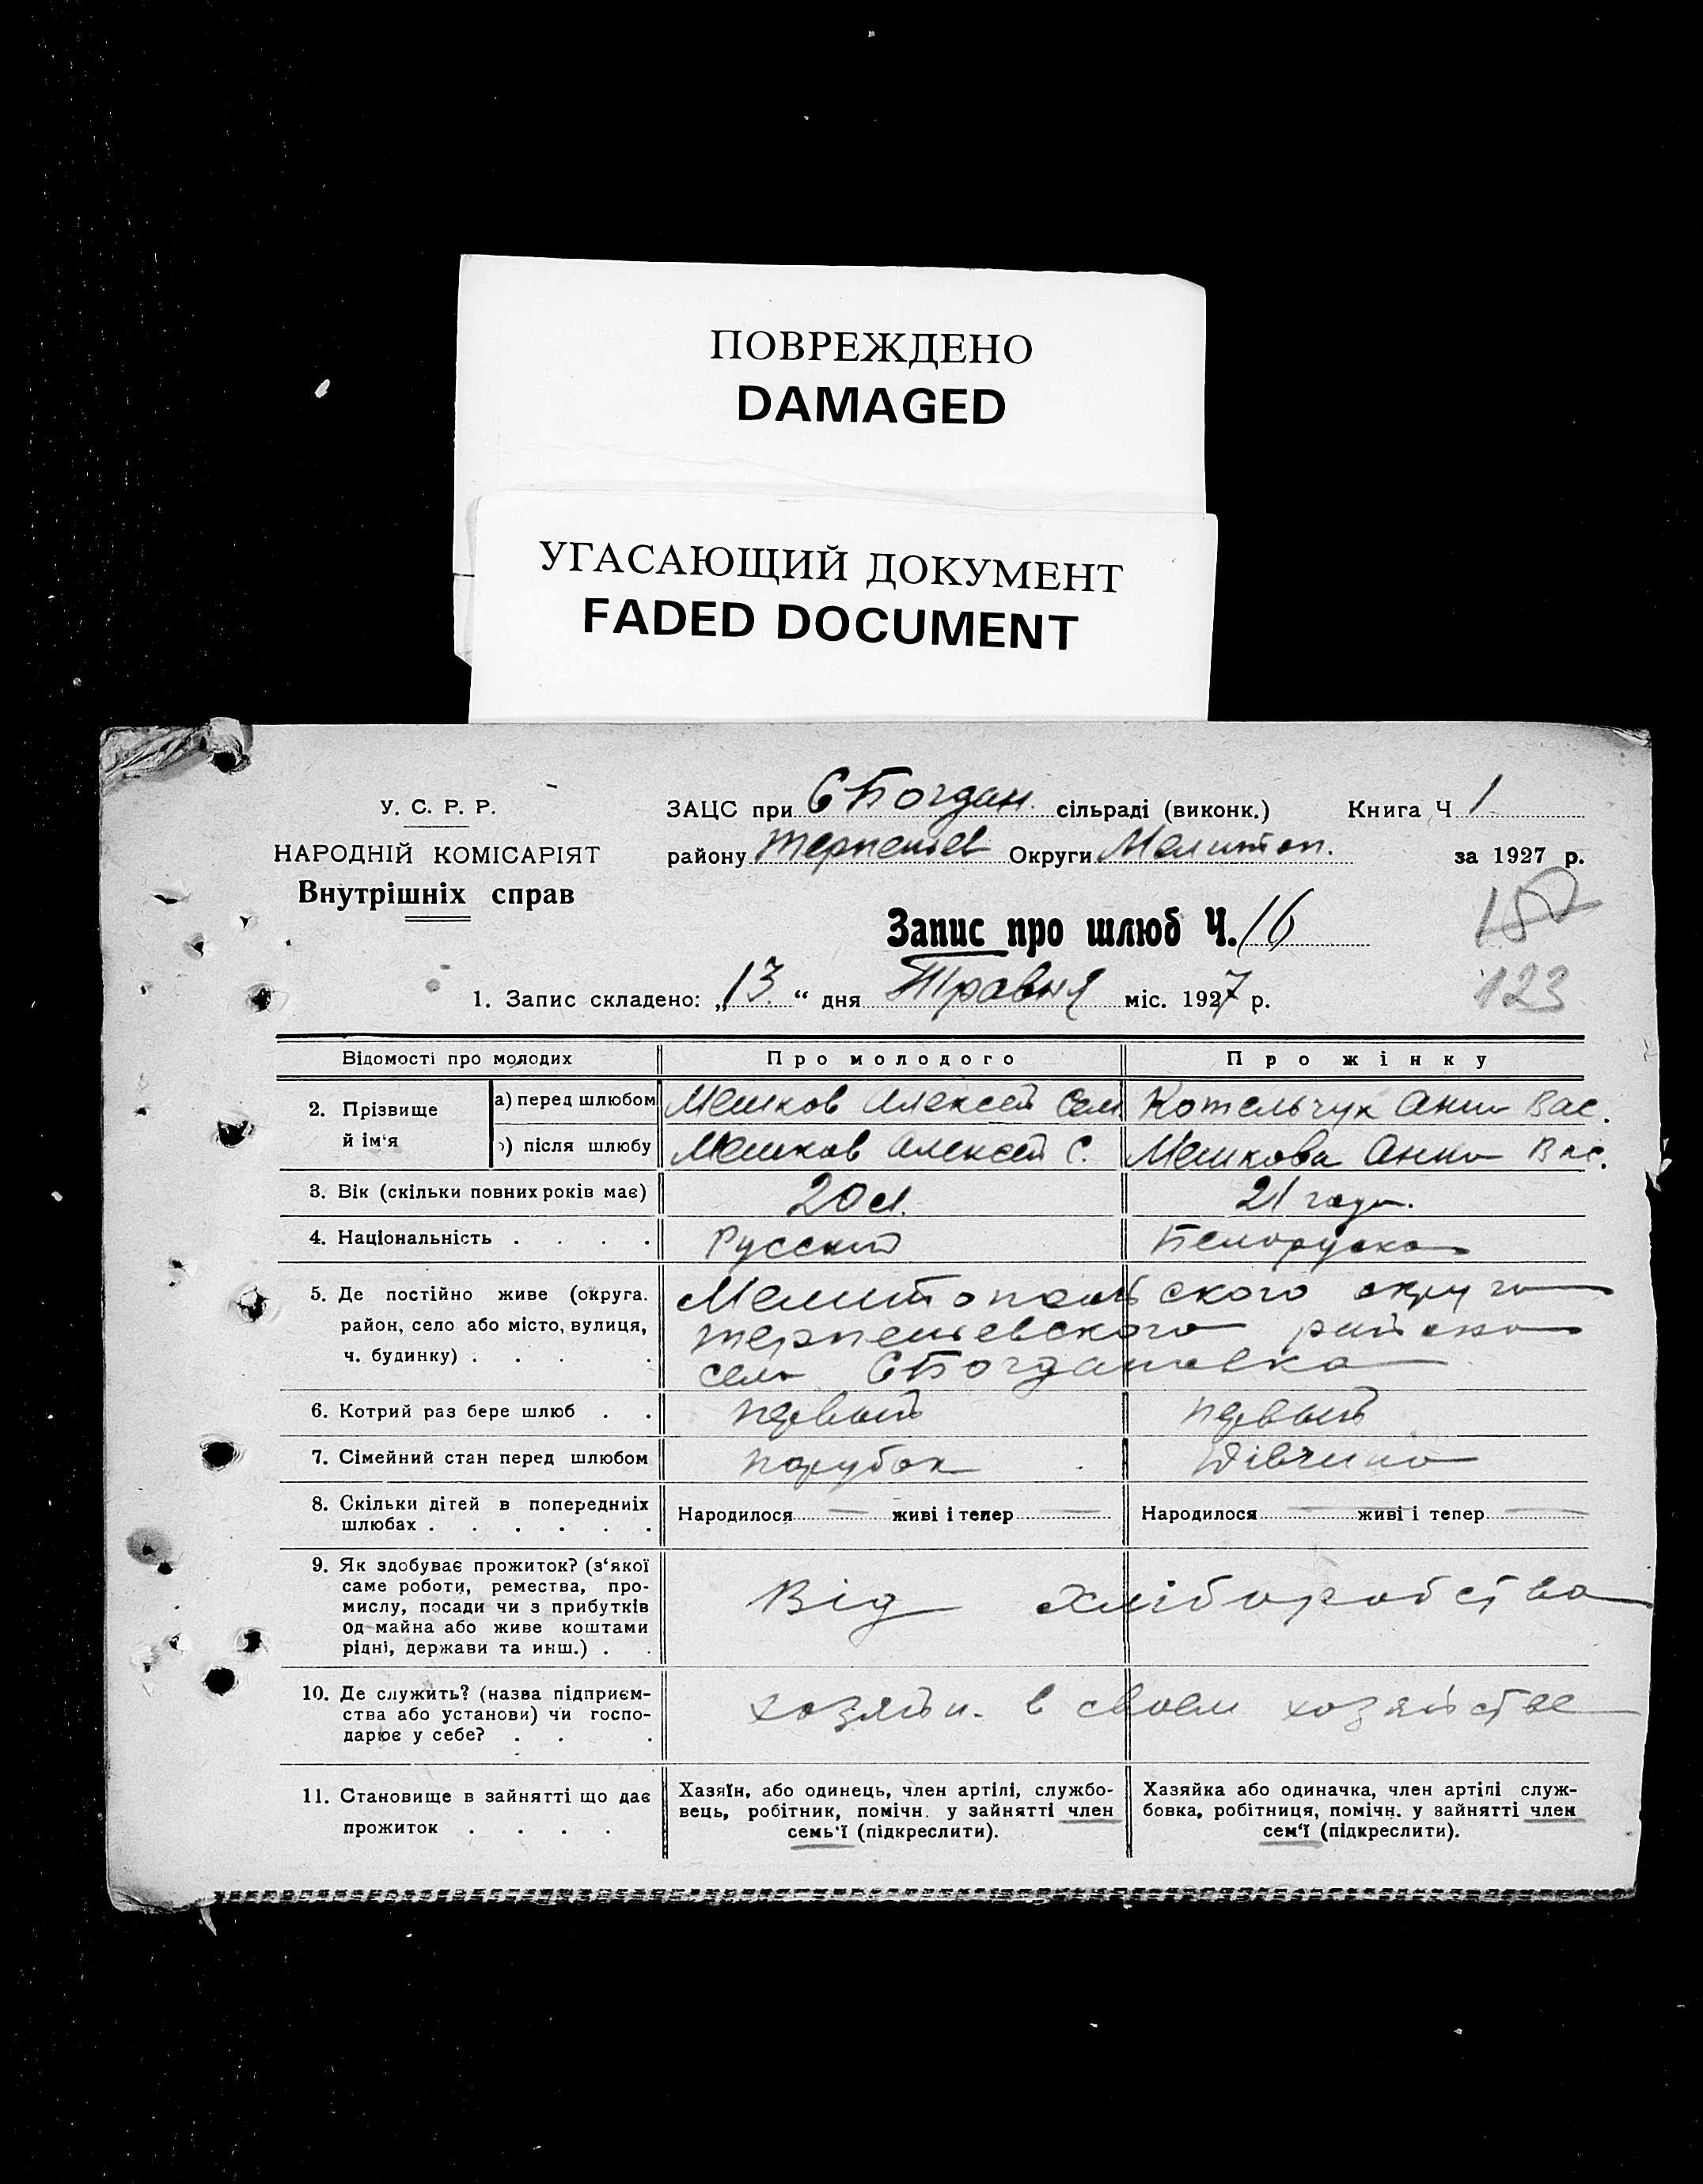 ПОВРЕЖДЕНО
DAMAGED
УГАСАЮЩИЙ ДОКУМЕНТ
FADED DOCUMENT
У. С. Р. Р.
НАРОДНІЙ КОМІСАРІЯТ
Внутрішніх справ
ЗАЦС при СБогдан. сільраді (виконк.) Книга Ч 1
району Терпеньев Округи Мелитоп. за 1927 р.
Запис про шлюб Ч. 16
157
123
1. Запис складено: „13“ дня Травня міс. 1927 р.
Відомості про молодих Про молодого Про жінку
2. Прізвище й ім‘я
а) перед шлюбом Мешков Алексей Сем Котельчук Анна Вас.
б) після шлюбу Мешков Алексей С. Мешкова Анна Вас.
3. Вік (скільки повних років має) 20 л. 21 года.
4. Національність . . . . Русский Белоруска
5. Де постійно живе (округа. Мелитопольского округа
район, село або місто, вулиця, Терпеньевского района
ч. будинку) . . . . село СБогдановка
6. Котрий раз бере шлюб . . первый первый
7. Сімейний стан перед шлюбом парубок дівчина
8. Скільки дітей в попередниіх Народилося — живі і тепер — Народилося — живі і тепер —
шлюбах . . . . . .
9. Як здобуває прожиток? (з‘якої
саме роботи, ремества, про-
мислу, посади чи з прибутків Від хліборобства
од майна або живе коштами
рідні, держави та инш.) . .
10. Де служить? (назва підприєм-
ства або установи) чи госпо- хозяйн. в своем хозяйстве
дарює у себе? . . .
11. Становище в зайнятті що дає
прожиток . . . .
Хазяїн, або одинець, член артілі, службо-
вець, робітник, помічн. у зайнятті член
семь‘ї (підкреслити).
Хазяйка або одиначка, член артілі служ-
бовка, робітниця, помічн. у зайнятті член
сем‘ї (підкреслити).